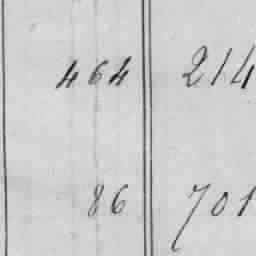 464 214
86 701